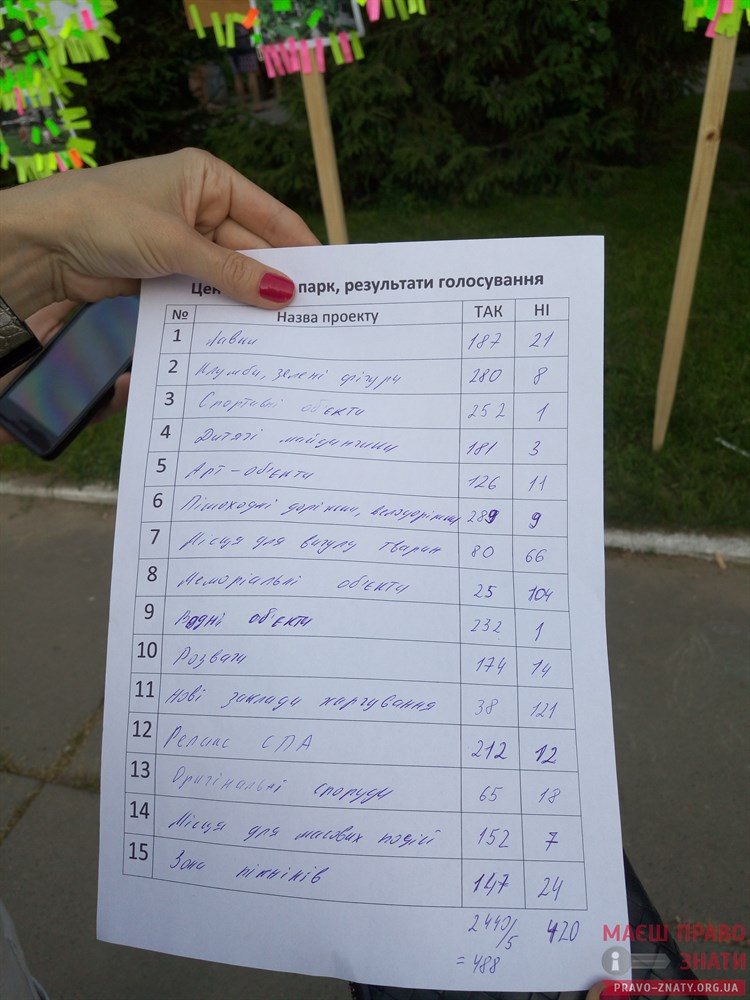 парк, результати голосування
№ Назва проекту ТАК НІ
1 Лавки 187 21
2 Клумби, зелені фігури 280 8
3 Спортивні об'єкти 252 1
4 Дитячі майданчики 181 3
5 Арт-об'єкти 126 11
6 Пішохідні доріжки, велодоріжки 289 9
7 Місця для вигулу тварин 80 66
8 Меморіальні об'єкти 25 104
9 Водні об'єкти 232 1
10 Розваги 174 14
11 Нові заклади харчування 38 121
12 Релакс СПА 212 12
13 Оригінальні споруди 65 18
14 Місця для масових подій 152 7
15 Зона пікніків 147 24
2440/5 420
= 488
МАЄШ ПРАВО
ЗНАТИ
PRAVO-ZNATY.ORG.UA